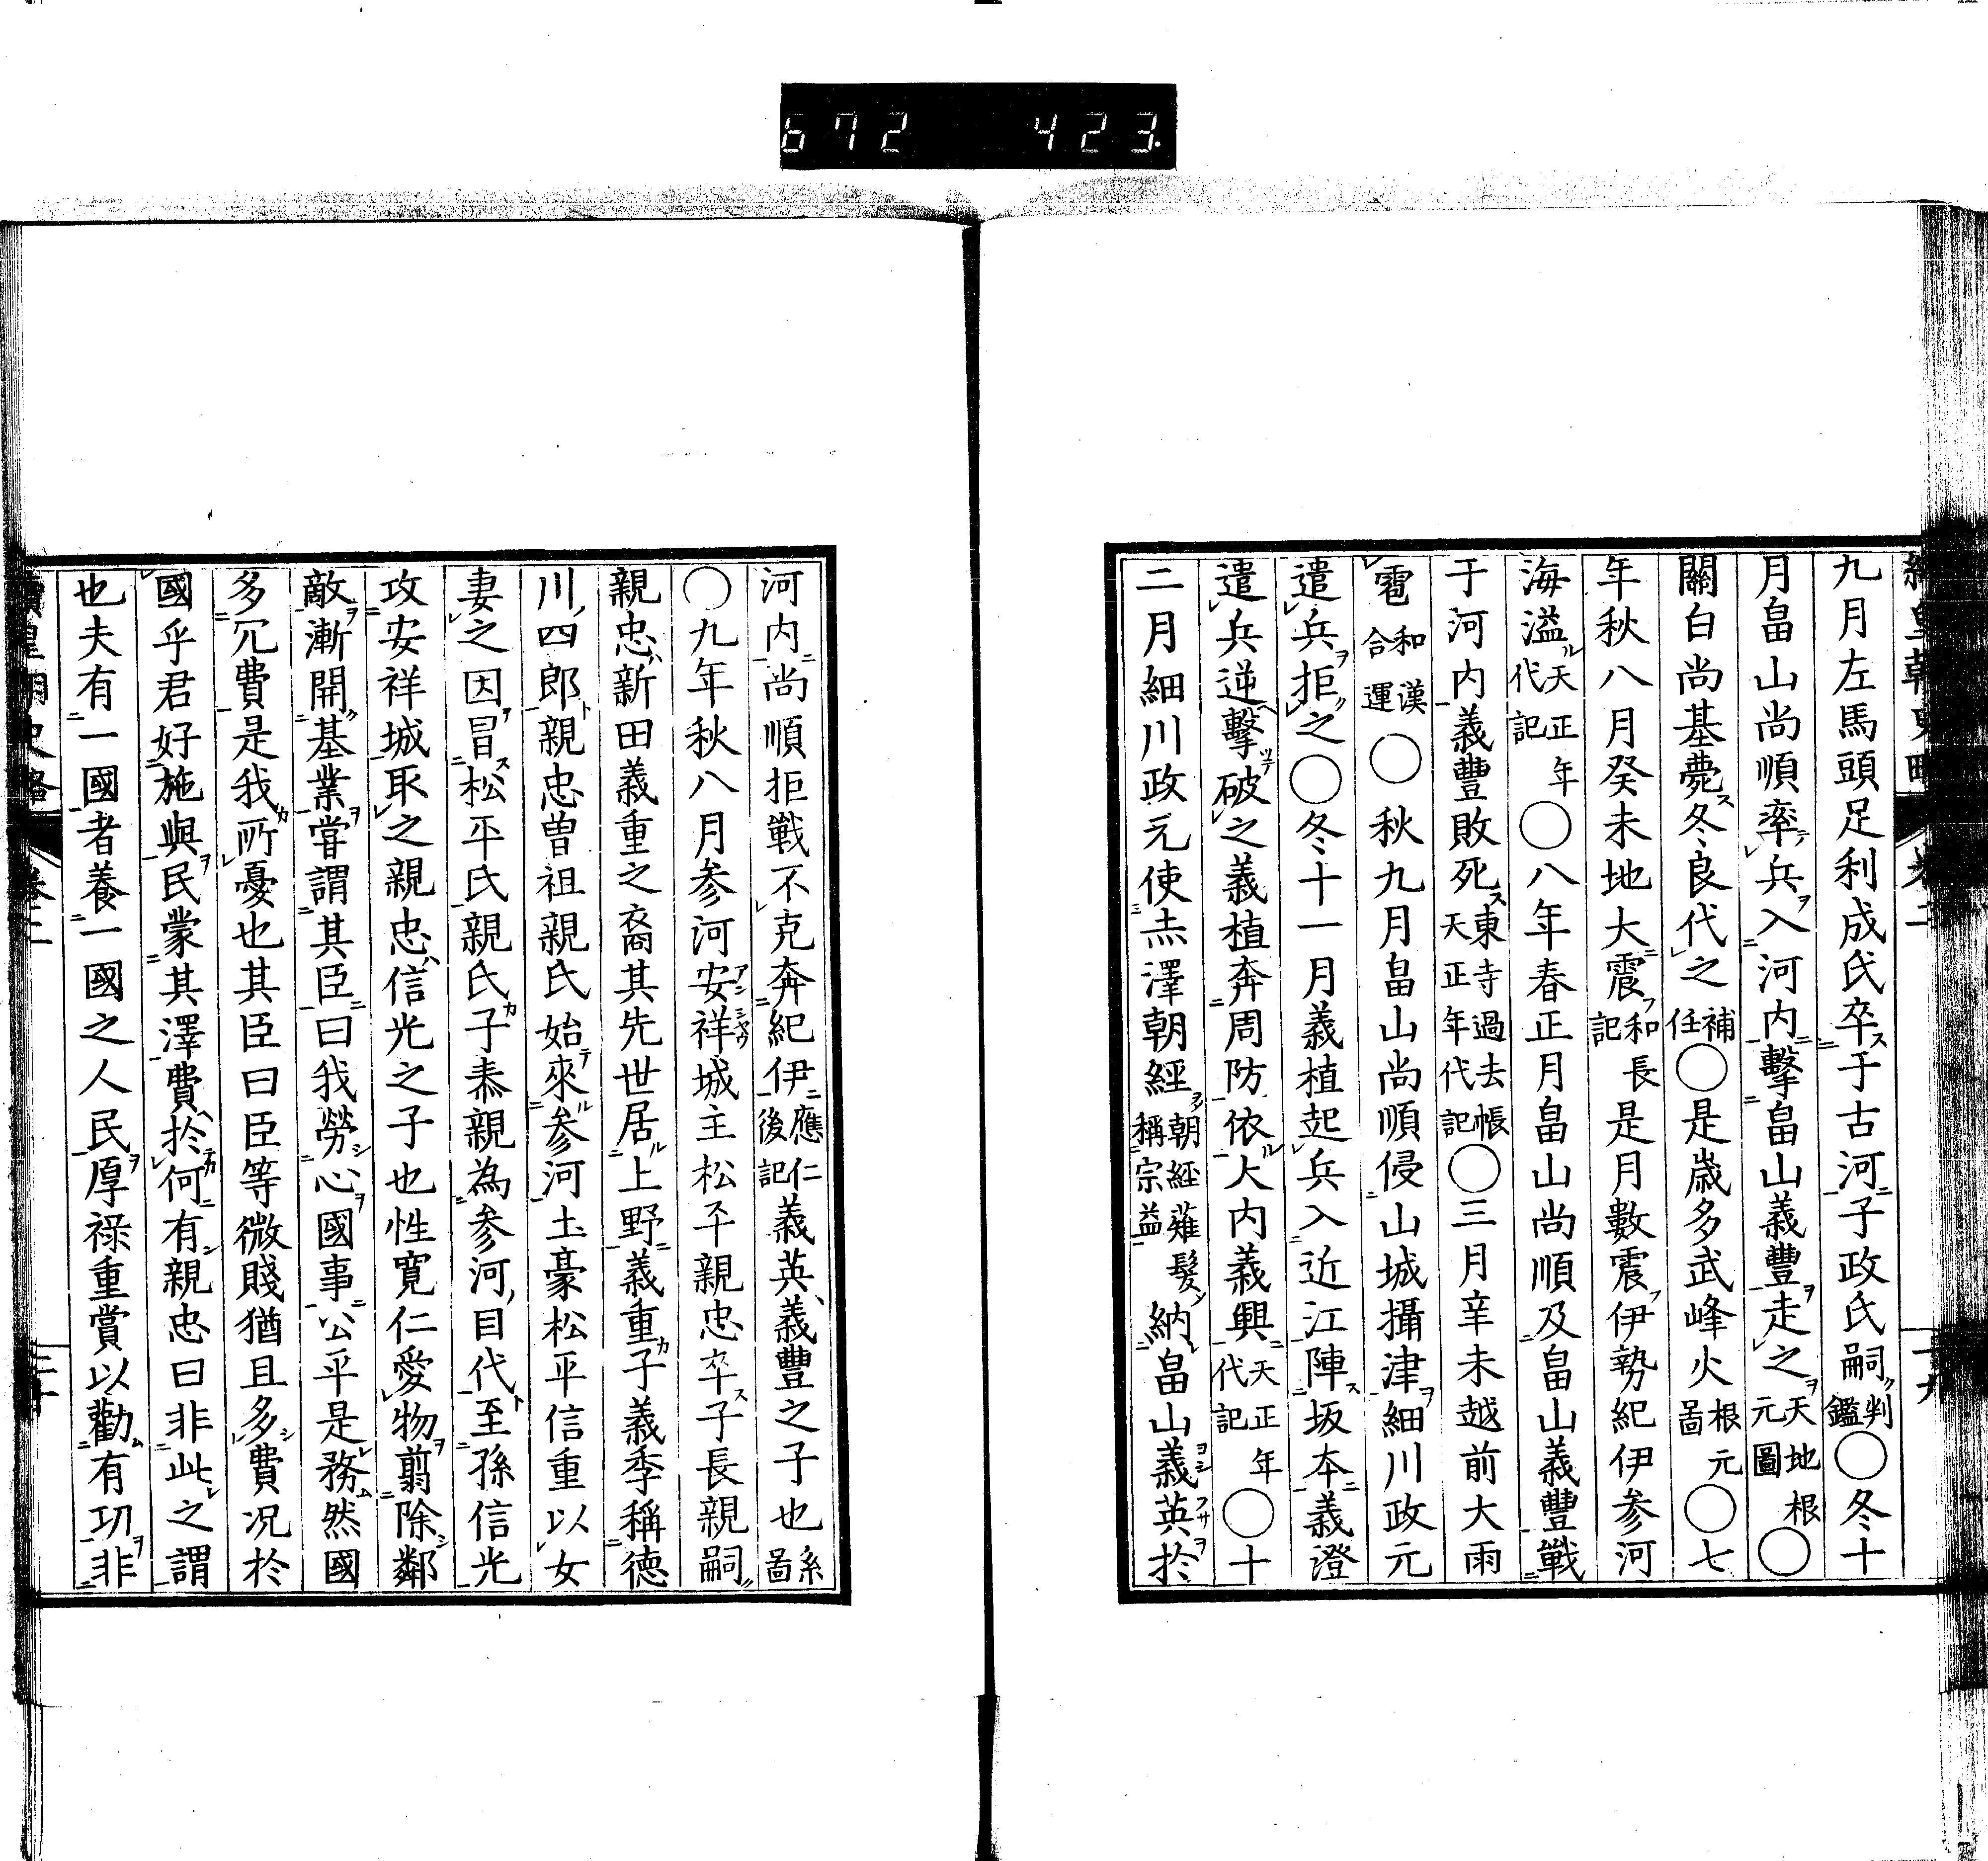 672 423.
續皇朝史略 卷二 十九
九月左馬頭足利成氏卒于古河子政氏嗣判鑑〇冬十
月畠山尚順率兵入河内擊畠山義豐走之天地根元圖〇
關白尚基薨冬良代之補任〇是歲多武峰火根元圖〇七
年秋八月癸未地大震和長記是月數震伊勢紀伊参河
海溢天正年代記〇八年春正月畠山尚順及畠山義豐戰
于河内義豐敗死東寺過去帳天正年代記〇三月辛未越前大雨
雹和漢合運〇秋九月畠山尚順侵山城攝津細川政元
遣兵拒之〇冬十一月義植起兵入近江陣坂本義澄
遣兵逆擊破之義植奔周防依大内義興天正年代記〇十
二月細川政元使赤澤朝經朝經薙髮稱宗益納畠山義英於
河内尚順拒戰不克奔紀伊應仁後記義英義豐之子也系圖
〇九年秋八月参河安祥城主松平親忠卒子長親嗣
親忠新田義重之裔其先世居上野義重子義季稱德
川四郎親忠曾祖親氏始來参河土豪松平信重以女
妻之因冒松平氏親氏子泰親為参河目代至孫信光
攻安祥城取之親忠信光之子也性寬仁愛物翦除鄰
敵漸開基業嘗謂其臣曰我勞心國事公平是務然國
多冗費是我所憂也其臣曰臣等微賤猶且多費况於
國乎君好施與民蒙其澤費於何有親忠曰非此之謂
也夫有一國者養一國之人民厚祿重賞以勸有功非
續皇朝史略 卷二 二十